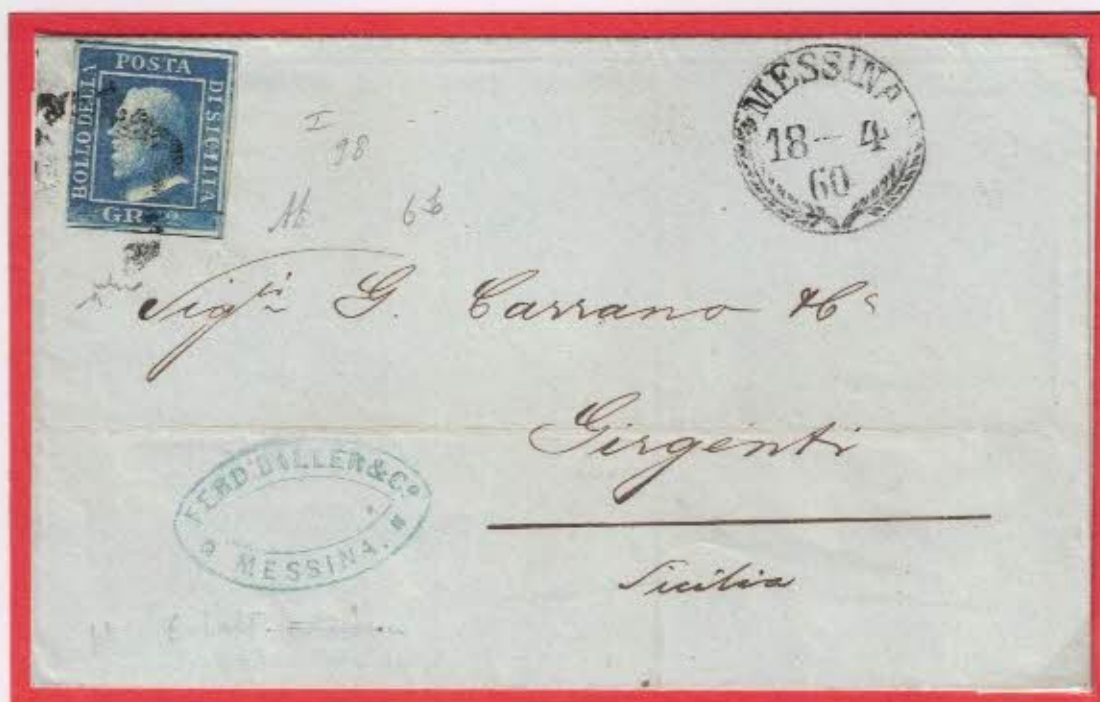 BOLLO DELLA
POSTA
DI SICILIA
GR. 2
MESSINA
18 — 4
60
I
98
6
Sig.ri G. Carrano & Cs
Girgenti
Sicilia
FERD. BALLER & Co
MESSINA.